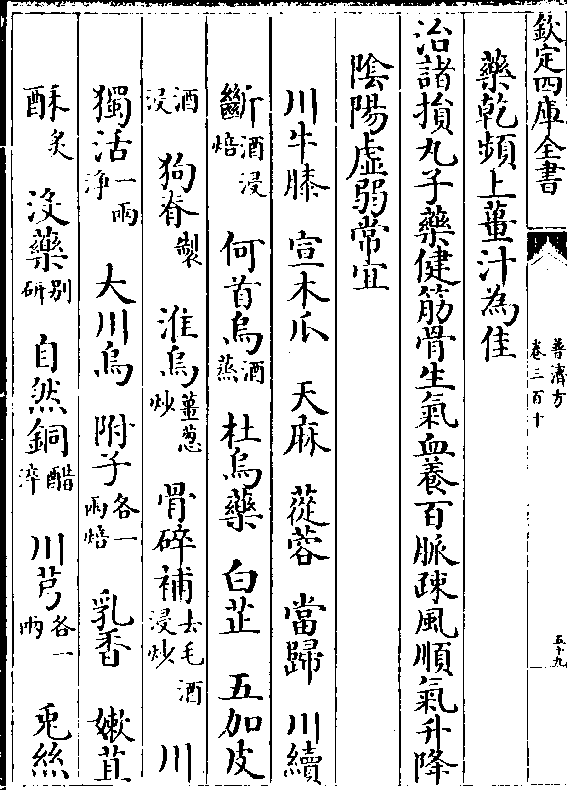 欽定四庫全書
普濟方
卷三百十
五十九
藥乾頻上薑汁為佳
治諸損丸子藥健筋骨生氣血養百脈疎風順氣升降
陰陽虛弱常宜
川牛膝 宣木瓜 天麻 蓯蓉 當歸 川續
斷酒浸焙 何首烏酒蒸 杜烏藥 白芷 五加皮
酒浸 狗脊製 淮烏薑葱炒 骨碎補去毛酒浸炒 川
獨活一兩净 大川烏 附子各一兩焙 乳香 嫰苴
酥炙 没藥别研 自然銅醋淬 川芎各一兩 兎絲